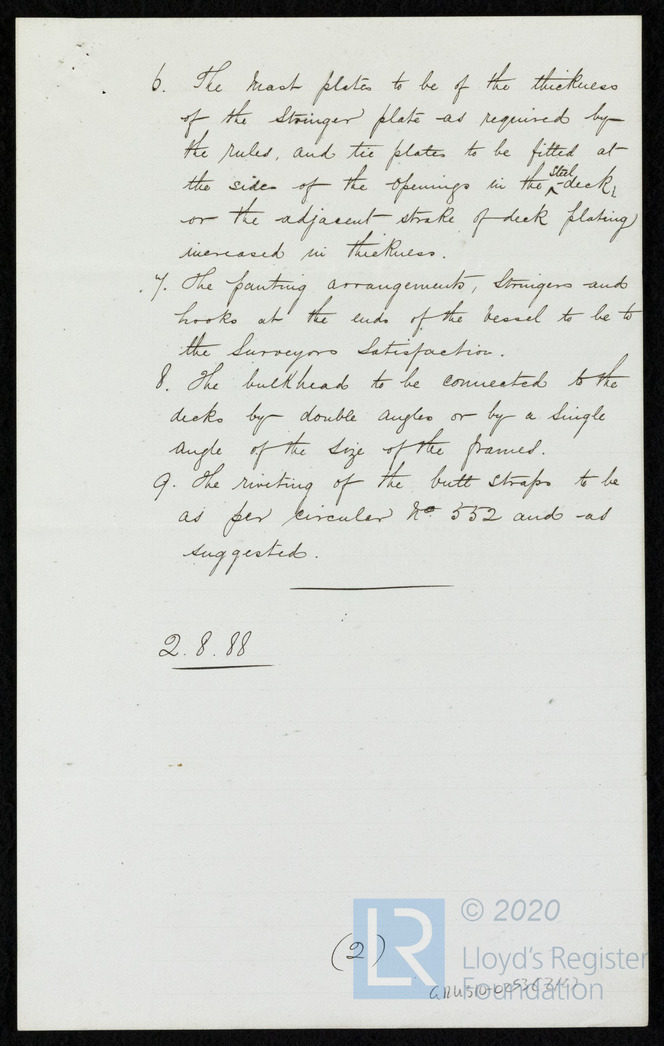 6. The Mast plates to be of the thickness
of the Stringer plate as required by
the rules, and tie plates to be fitted at
the sides of the openings in the steel deck,
or the adjacent strake of deck plating
increased in thickness.
7. The panting arrangements, Stringers and
hooks at the ends of the Vessel to be to
the Surveyors Satisfaction.
8. The bulkhead to be connected to the
decks by double angles or by a Single
angle of the size of the frames.
9. The riveting of the butt straps to be
as per circular No. 552 and as
suggested.
2.8.88
(2)
© 2020
Lloyd's Register
Foundation